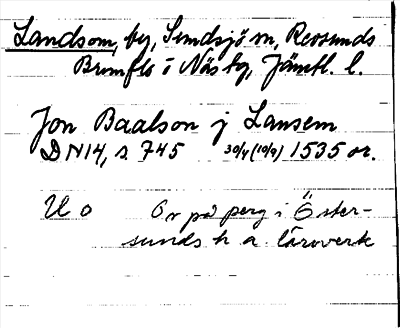 Landsom, by, Sundsjö sn, Revsunds
Brunflo i Näs hg, Jämtl. l.
Jon Baalson j Lansem
DN14, s 745 30/4 (10/9) 1535 or.
U o Or på perg i Öster-
sunds h a läroverk